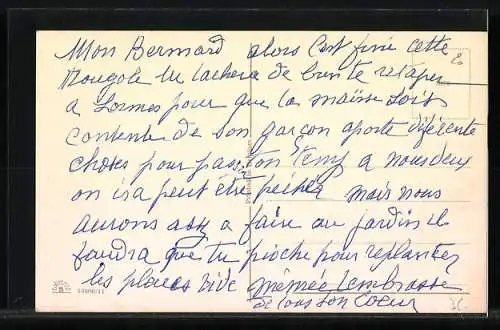 Mon Bernard alors c'est finie cette
de bien te retaper
a Lormes pour que la soit
contente de son garçon aporte diférente
choses pour passé ton temp a nous deux
on ira peut être pecher mais nous
aurons assz a faire au jardin il
faudra que tu pioche pour replanter
les places vide mémée t'embrasse
de tous son Coeur